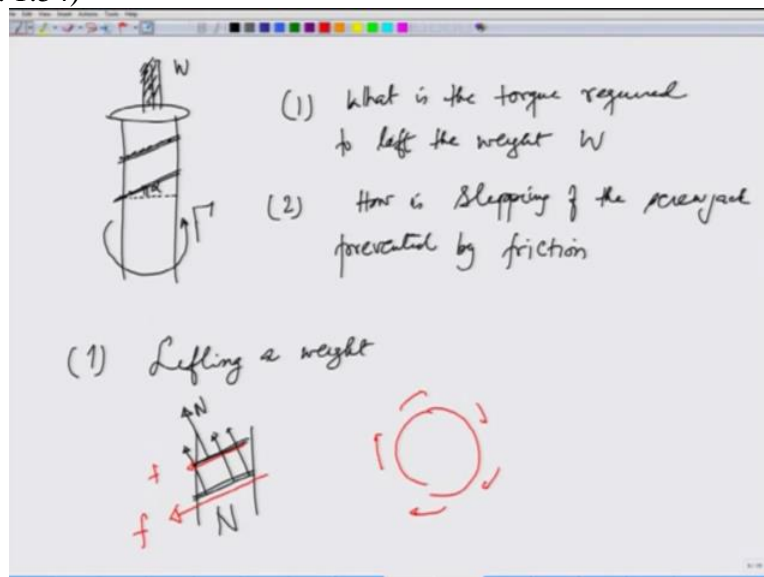 1:54)
W
(1) What is the torque required
to lift the weight W
α
Γ
(2) How is slipping of the screw jack
prevented by friction
(1) Lifting a weight
N
f
f
N